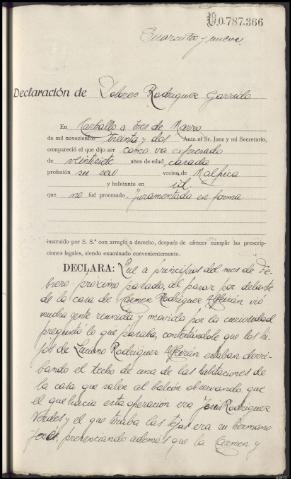 10.787.366
Cuarenta y nueve
Declaración de Dolores Rodríguez Garrido
En Carballo a tres de Marzo
de mil novecientos treinta y dos Ante el Sr. Juez y mi Secretario,
compareció el que dijo ser como va expresado
de veintisiete años de edad casada
profesión su sexo vecina de Malpica
y habitante en id.
que no fué procesado Juramentada en forma
instruído por S. S.ª con arreglo a derecho, después de ofrecer cumplir las prescrip-
ciones legales, siendo examinado convenientemente.
DECLARA: Que a principios del mes de Fe-
brero próximo pasado, al pasar por delante
de la casa de Carmen Rodríguez vió
mucha gente reunida y movida por la curiosidad
preguntó lo que pasaba, contestándole que los hi-
jos de Rodríguez estaban derri-
bando el techo de una de las habitaciones de
la casa que salen al balcón observando que
el que hacía esta operación era José Rodríguez
y el que tiraba las tejas era su hermano
presenciando además que la Carmen y